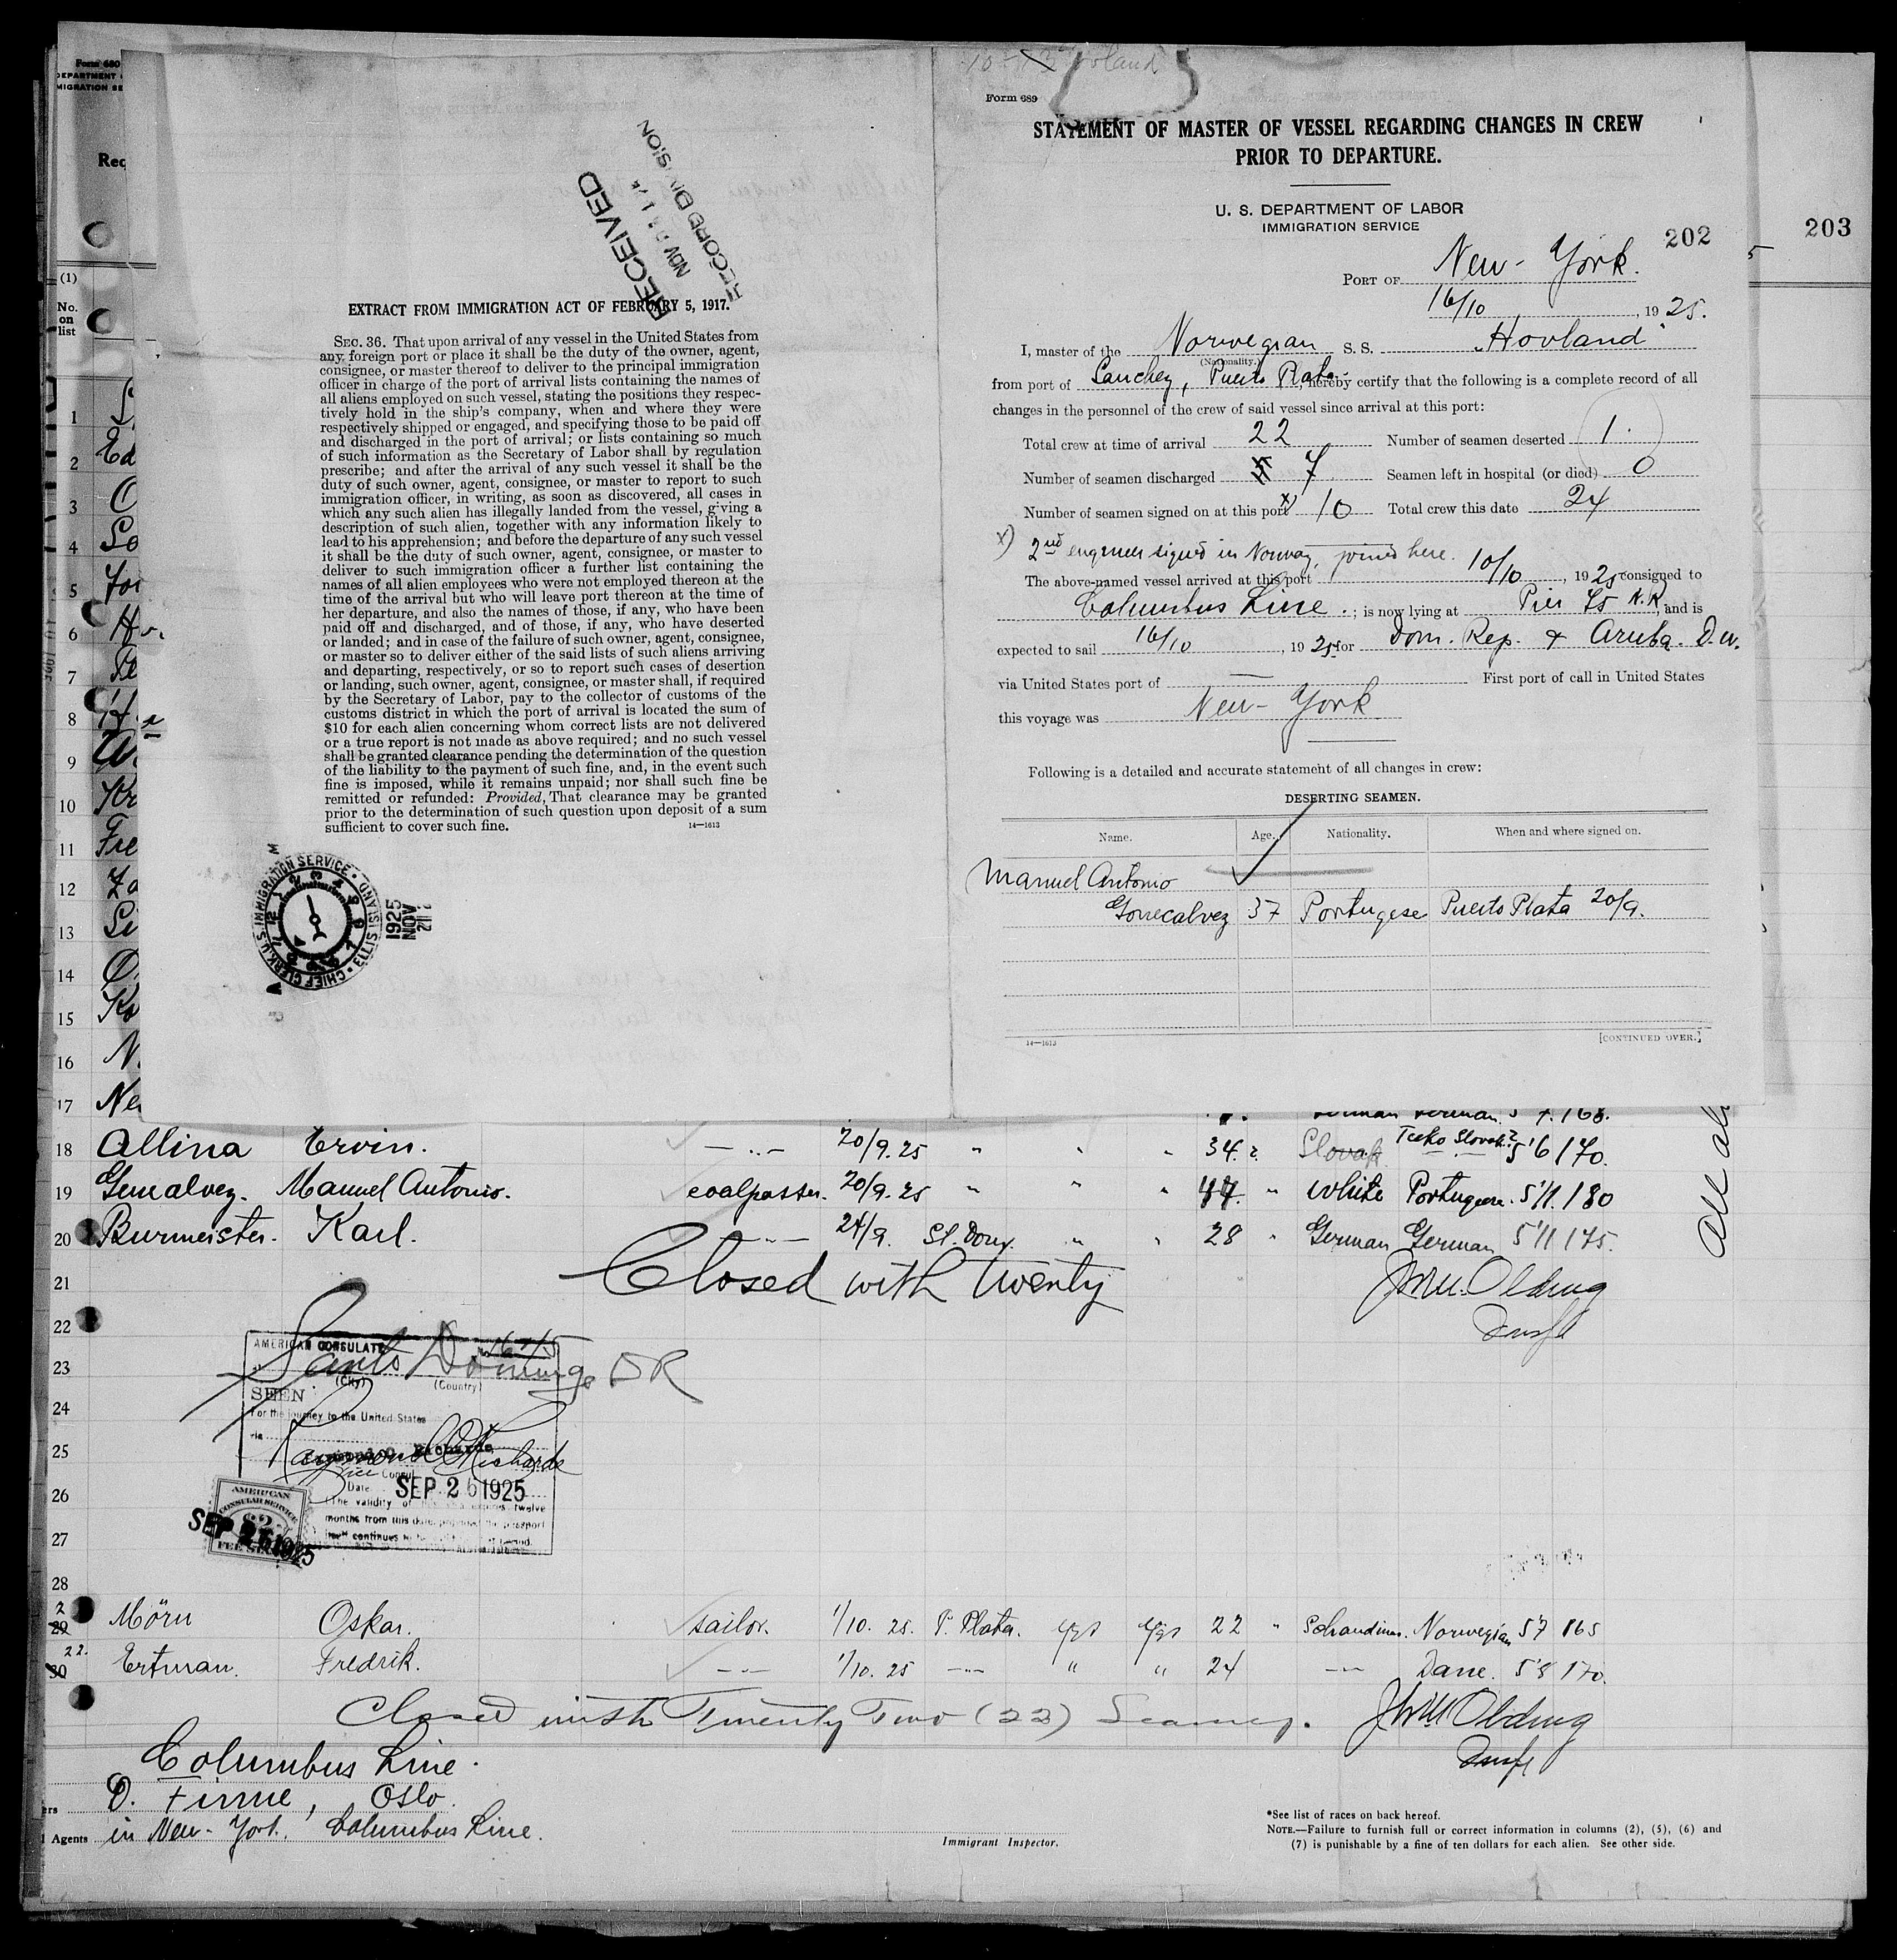 Form 680
DEPARTMENT
Rec
(1)
No.
on
list
RECEIVED
NOV
RECORD DIVISION
EXTRACT FROM IMMIGRATION ACT OF FEBRUARY 5, 1917.
SEC. 36. That upon arrival of any vessel in the United States from
any foreign port or place it shall be the duty of the owner, agent,
consignee, or master thereof to deliver to the principal immigration
officer in charge of the port of arrival lists containing the names of
all aliens employed on such vessel, stating the positions they respec-
tively hold in the ship's company, when and where they were
respectively shipped or engaged, and specifying those to be paid off
and discharged in the port of arrival; or lists containing so much
of such information as the Secretary of Labor shall by regulation
prescribe; and after the arrival of any such vessel it shall be the
duty of such owner, agent, consignee, or master to report to such
immigration officer, in writing, as soon as discovered, all cases in
which any such alien has illegally landed from the vessel, giving a
description of such alien, together with any information likely to
lead to his apprehension; and before the departure of any such vessel
it shall be the duty of such owner, agent, consignee, or master to
deliver to such immigration officer a further list containing the
names of all alien employees who were not employed thereon at the
time of the arrival but who will leave port thereon at the time of
her departure, and also the names of those, if any, who have been
paid off and discharged, and of those, if any, who have deserted
or landed; and in case of the failure of such owner, agent, consignee,
or master so to deliver either of the said lists of such aliens arriving
and departing, respectively, or so to report such cases of desertion
or landing, such owner, agent, consignee, or master shall, if required
by the Secretary of Labor, pay to the collector of customs of the
customs district in which the port of arrival is located the sum of
$10 for each alien concerning whom correct lists are not delivered
or a true report is not made as above required; and no such vessel
shall be granted clearance pending the determination of the question
of the liability to the payment of such fine, and, in the event such
fine is imposed, while it remains unpaid; nor shall such fine be
remitted or refunded: Provided, That clearance may be granted
prior to the determination of such question upon deposit of a sum
sufficient to cover such fine.
14—1613
CHIEF CLERK U.S. IMMIGRATION SERVICE · ELLIS ISLAND
1925
NOV
Form 689
STATEMENT OF MASTER OF VESSEL REGARDING CHANGES IN CREW
PRIOR TO DEPARTURE.
U. S. DEPARTMENT OF LABOR
IMMIGRATION SERVICE
202
203
PORT OF New-York.
16/10, 1925.
I, master of the Norwegian S. S. "Hovland"
(Nationality.)
from port of Sanchez, Puerto Plata, hereby certify that the following is a complete record of all
changes in the personnel of the crew of said vessel since arrival at this port:
Total crew at time of arrival 22 Number of seamen deserted 1.
Number of seamen discharged 7 Seamen left in hospital (or died) 0
Number of seamen signed on at this port x) 10 Total crew this date 24
x) 2nd engineer signed in Norway, joined here.
The above-named vessel arrived at this port 10/10, 1925 consigned to
Columbus Line.; is now lying at Pier 45 N.R, and is
expected to sail 16/10, 1925 for Dom. Rep. & Aruba. D.W.
via United States port of — First port of call in United States
this voyage was New-York
Following is a detailed and accurate statement of all changes in crew:
DESERTING SEAMEN.
Name. Age. Nationality. When and where signed on.
Manuel Antonio
Gonecalvez 37 Portugese Puerto Plata 20/9.
14—1613 [CONTINUED OVER.]
1
2 Ed
3
4 So
5
6
7
8
9
10 Kr
11 Fre
12
13
14
15
16 N
17 Ne
18 Allina Ervin. —„— 20/9.25 " " " 34. Slovak Tceko Slovak? 5'6 170.
19 Gencalvez. Manuel Antonio. coalpasser. 20/9.25 " " " 44. " White Portugese. 5'11. 180
20 Burmeister. Karl. —„— 24/9. St. Dom. " " 28 " German German 5'11 175.
21 Closed with twenty J Wm. Olding
22 Insp
23
24
25
26
27
28
AMERICAN CONSULATE
Santo Domingo DR
(City) (Country)
SEEN
For the journey to the United States
Raymond O Richards
Vice Consul
Date SEP 26 1925
The validity of this visa expires twelve
months from this date, provided the passport
itself continues to be valid for that period.
AMERICAN
CONSULAR SERVICE
$2
FEE STAMP
SEP 26 1925
29 Mörn Oskar. sailor. 1/10. 25. P. Plata. yes yes 22 " Schandinav. Norwegian 5'7 165
22. 30 Ertman. Fredrik. —„— 1/10. 25 —„— " " 24 —„— Dane. 5'8 170.
Closed with Twenty Two (22) Seamen. J Wm Olding
Insp
Columbus Line.
O. Finne, Oslo.
Agents in New-York. Columbus Line.
Immigrant Inspector.
*See list of races on back hereof.
NOTE.—Failure to furnish full or correct information in columns (2), (5), (6) and
(7) is punishable by a fine of ten dollars for each alien. See other side.